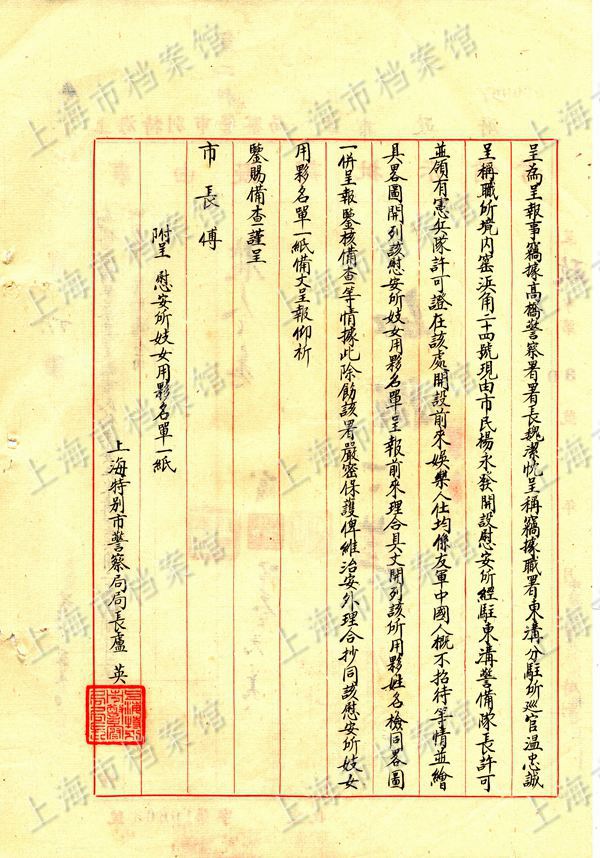 呈為呈報事竊據高橋警察署署長魏潔忱呈稱竊據職署東溝分駐所巡官溫忠誠
呈稱職所境内窑浜角二十四號現由市民楊永發開設慰安所經駐東溝警備隊長許可
並領有憲兵隊許可證在該處開設前來娛樂人仕均係友軍中國人概不招待等情並繪
具畧圖開列該慰安所妓女用夥名單呈報前來理合具文開列該所用夥姓名檢同畧圖
一併呈報鑒核備查等情據此除飭該署嚴密保護俾維治安外理合抄同該慰安所妓女
用夥名單一紙備文呈報仰祈
鑒賜備查謹呈
市長傅
附呈 慰安所妓女用夥名單一紙
上海特别市警察局局長盧英
上海市档案馆